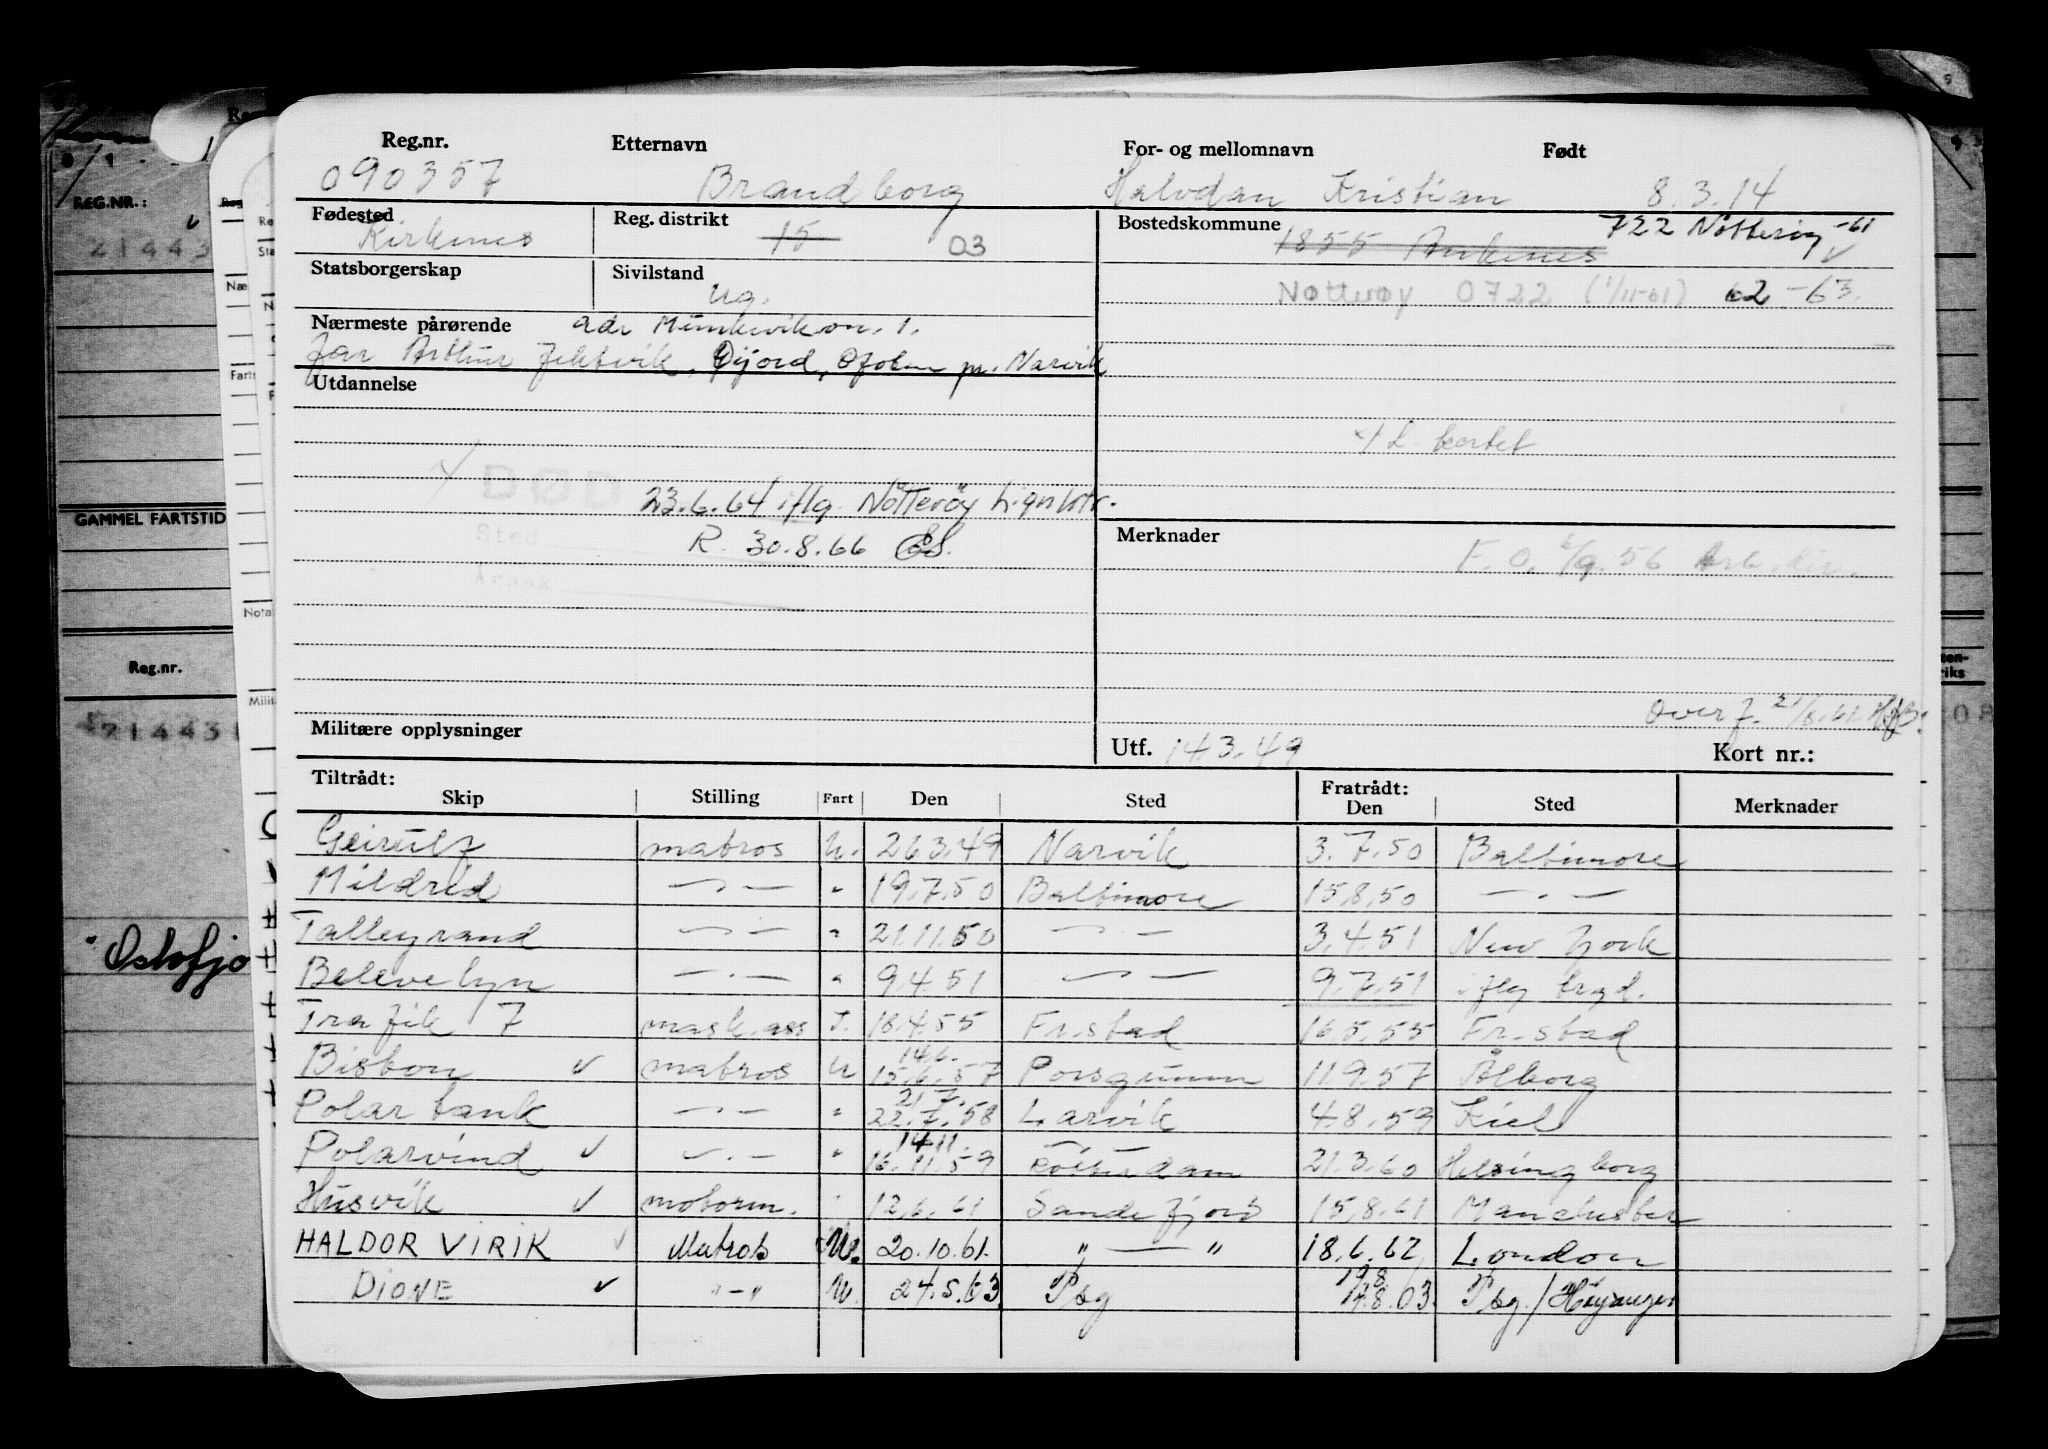 Reg.nr. Etternavn For- og mellomnavn Født
090357 Brandborg Halvdan Kristian 8.3.14
Fødested Reg. distrikt Bostedskommune 722 Nøtterøy -61
Kirkenes 15 03 1855 Ankenes
Statsborgerskap Sivilstand
ug. Nøtterøy 0722 (1/11-61) 62-63
Nærmeste pårørende adr Munkevikvn. 1.
far Arthur Jektvik, Øijord, Ofoten pr. Narvik
Utdannelse
kortet
DØD 23.6.64 iflg. Nøtterøy Lignktr.
Sted R. 30.8.66
Årsak
Merknader
F.O. 6/9.56 Arb.dir.
Overf. 21/8.61
Militære opplysninger Utf. 14.3.49 Kort nr.:
Tiltrådt: Fratrådt:
Skip Stilling Fart Den Sted Den Sted Merknader
Geirulf matros u. 26.3.49 Narvik 3.7.50 Baltimore
Mildred — · — " 19.7.50 Baltimore 15.8.50 — · —
Talleyrand — · — " 21.11.50 — · — 3.4.51 New York
Belevelyn — · — " 9.4.51 — · — 9.7.51 iflg trgd.
Trafik 7 mask.ass J. 18.4.55 Fr.stad 16.5.55 Fr.stad
14.6.
Bisbon ✓ matros u 15.6.57 Porsgrunn 11.9.57 Ålborg
21.7.
Polartank — · — " 22.7.58 Larvik 4.8.59 Kiel
14.11.
Polarvind ✓ — · — " 16.11.59 Rotterdam 21.3.60 Helsingborg
Husvik ✓ motorm. " 12.6.61 Sandefjord 15.8.61 Manchester
HALDOR VIRIK ✓ Matros U. 20.10.61. " — " 18.6.62 London
19.8
DIONE ✓ " — " U. 24.5.63 Tbg 17.8.63. Tbg./Høyanger
REG.NR.:
214431
GAMMEL FARTSTID
Reg.nr.
214431
"Oslofjo